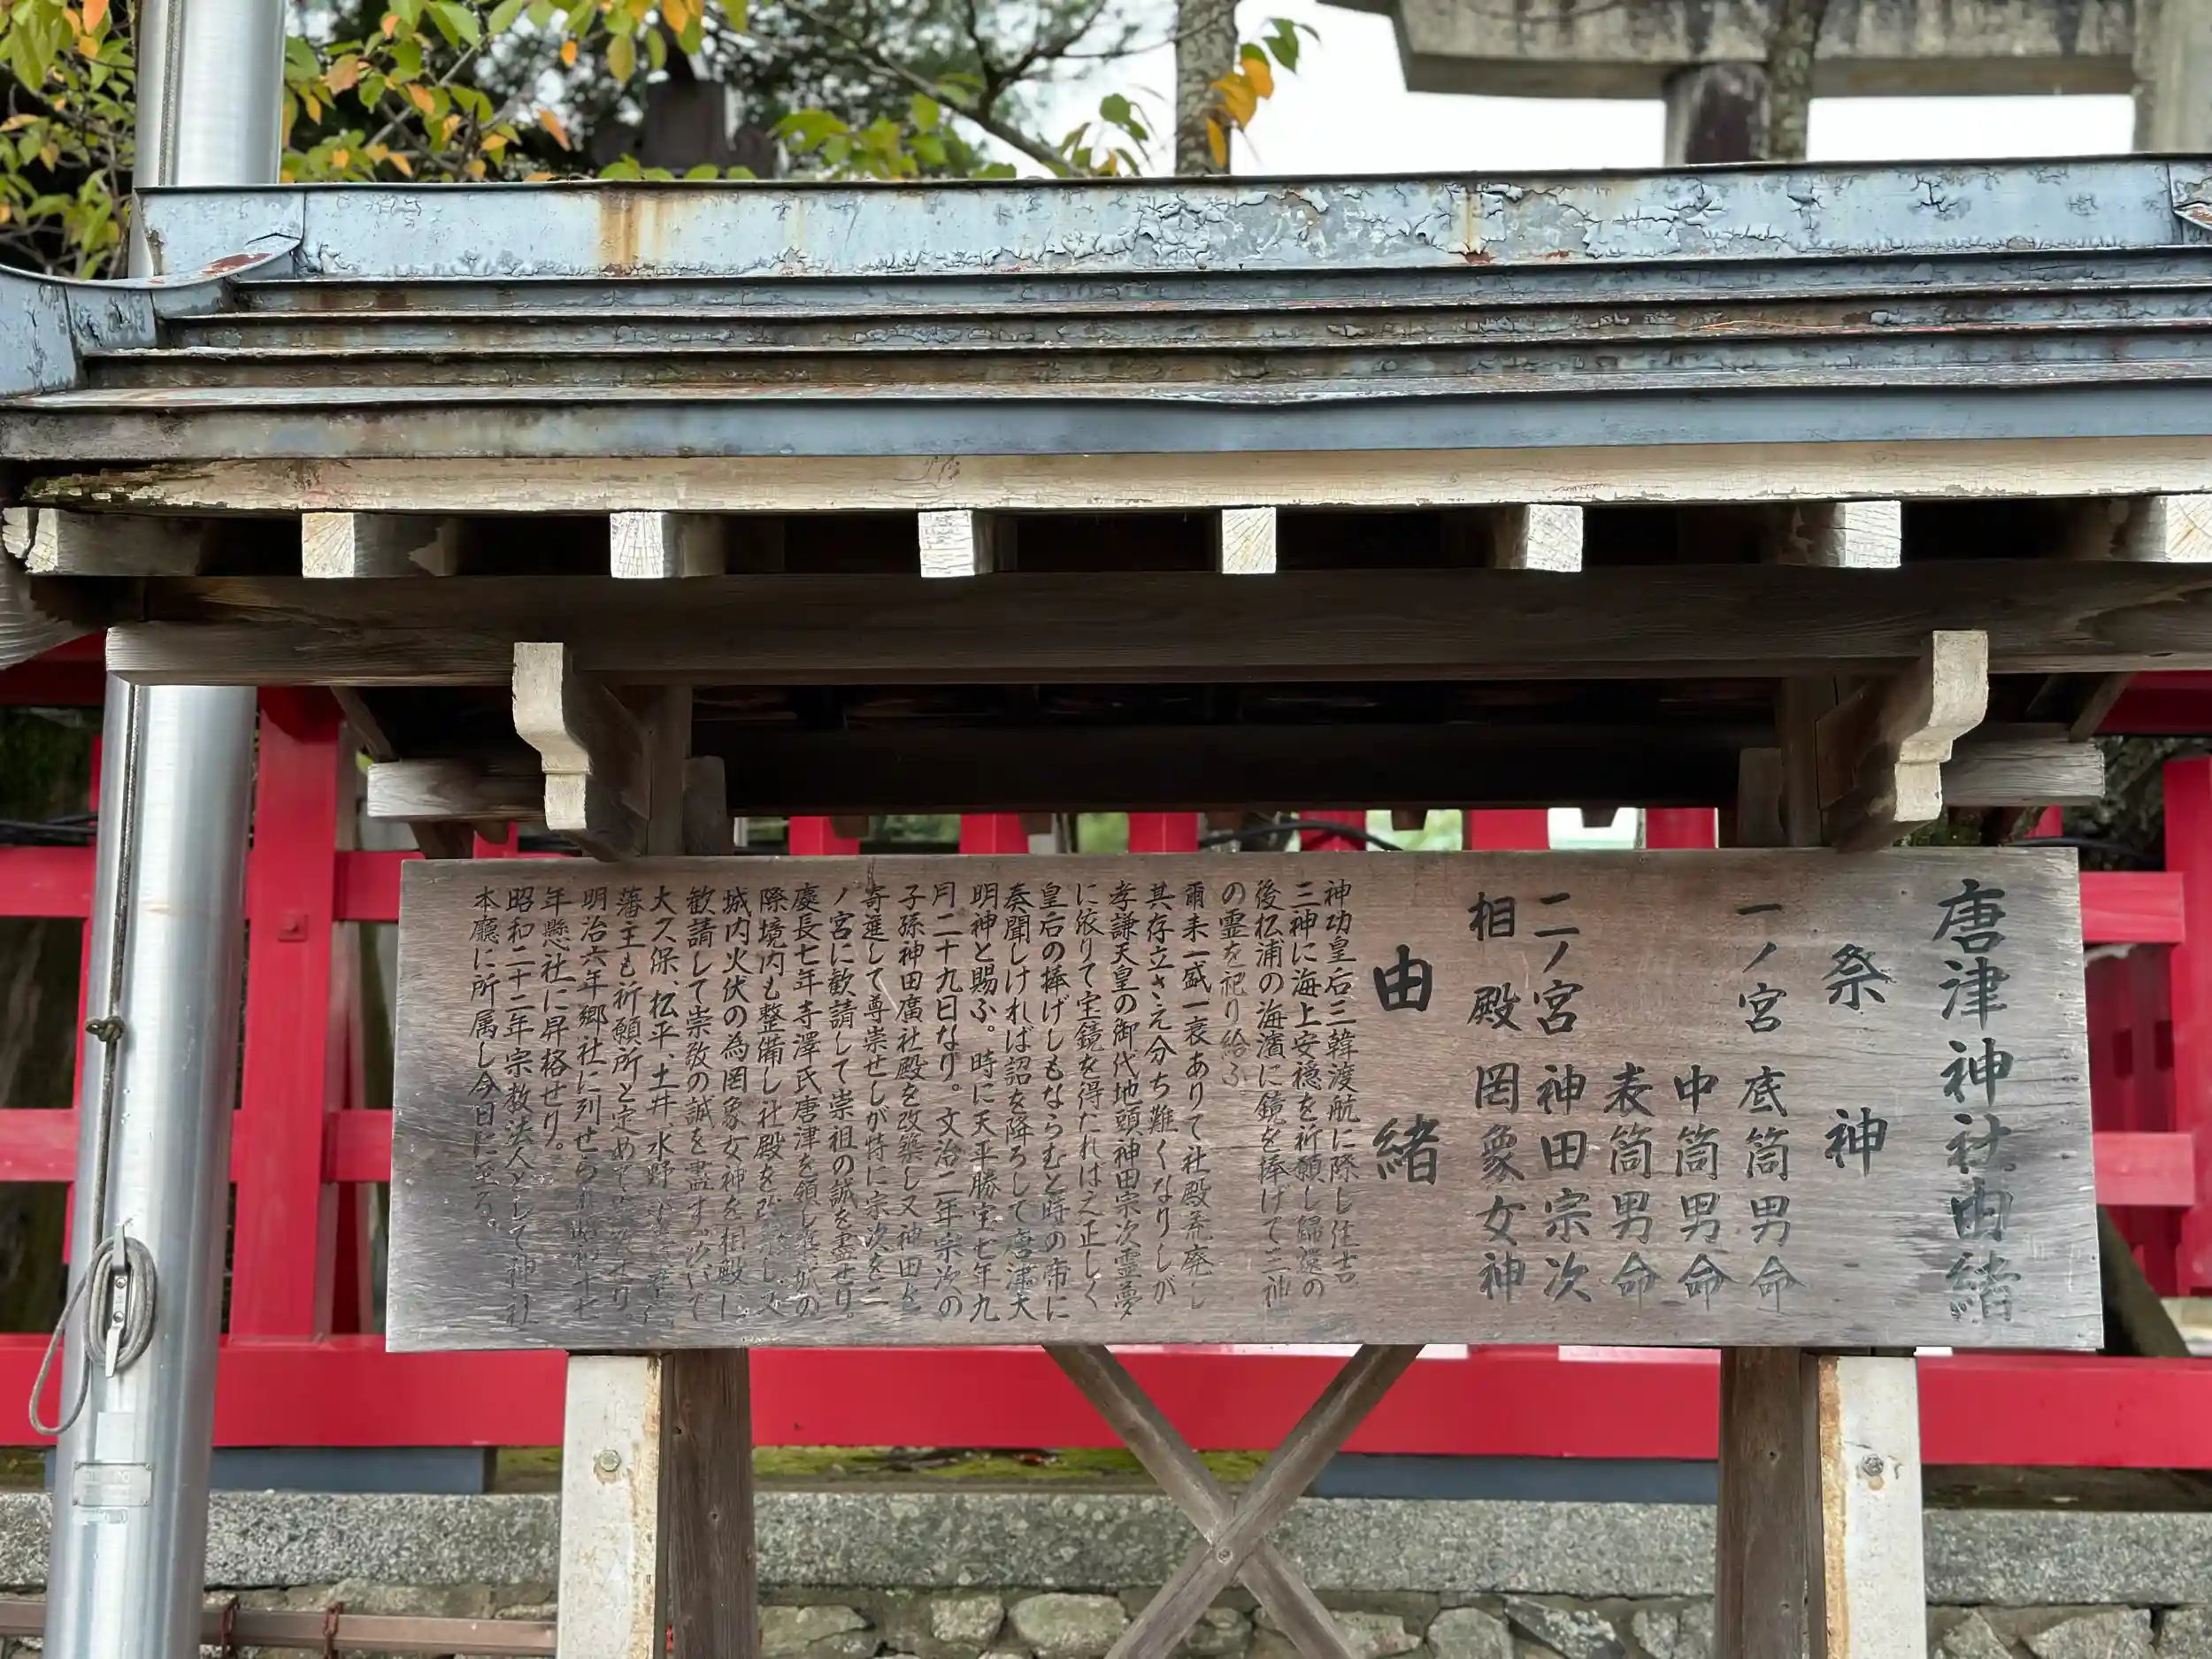 唐津神社由緒
祭神
一ノ宮 底筒男命
中筒男命
表筒男命
二ノ宮 神田宗次
相殿 罔象女神
由緒
神功皇后三韓渡航に際し住吉
三神に海上安穏を祈願し帰還の
後松浦の海濱に鏡を捧げて三神
の霊を祀り給ふ
爾来一盛一衰ありて社殿荒廃し
其存立さえ分ち難くなりしが
孝謙天皇の御代地頭神田宗次霊夢
に依りて宝鏡を得たればえ正しく
皇后の捧げしもならむと時の帝に
奏聞しければ詔を降ろして唐津大
明神と賜ふ。時に天平勝宝七年九
月二十九日なり。文治二年宗次の
子孫神田廣社殿を改築し又神田を
寄進して尊崇せしが特に宗次を二
ノ宮に歓請して崇祖の誠を盡せり。
慶長七年寺澤氏唐津を領し築城の
際境内も整備し社殿を改築し又
城内火伏の為罔象女神を相殿に
歓請して崇敬の誠を盡す。
大久保、松平、土井、水野
藩主も祈願所と定めて せり。
明治六年郷社に列せられ 十七
年縣社に昇格せり。
昭和二十二年宗教法人として神社
本廳に所属し今日に至る。